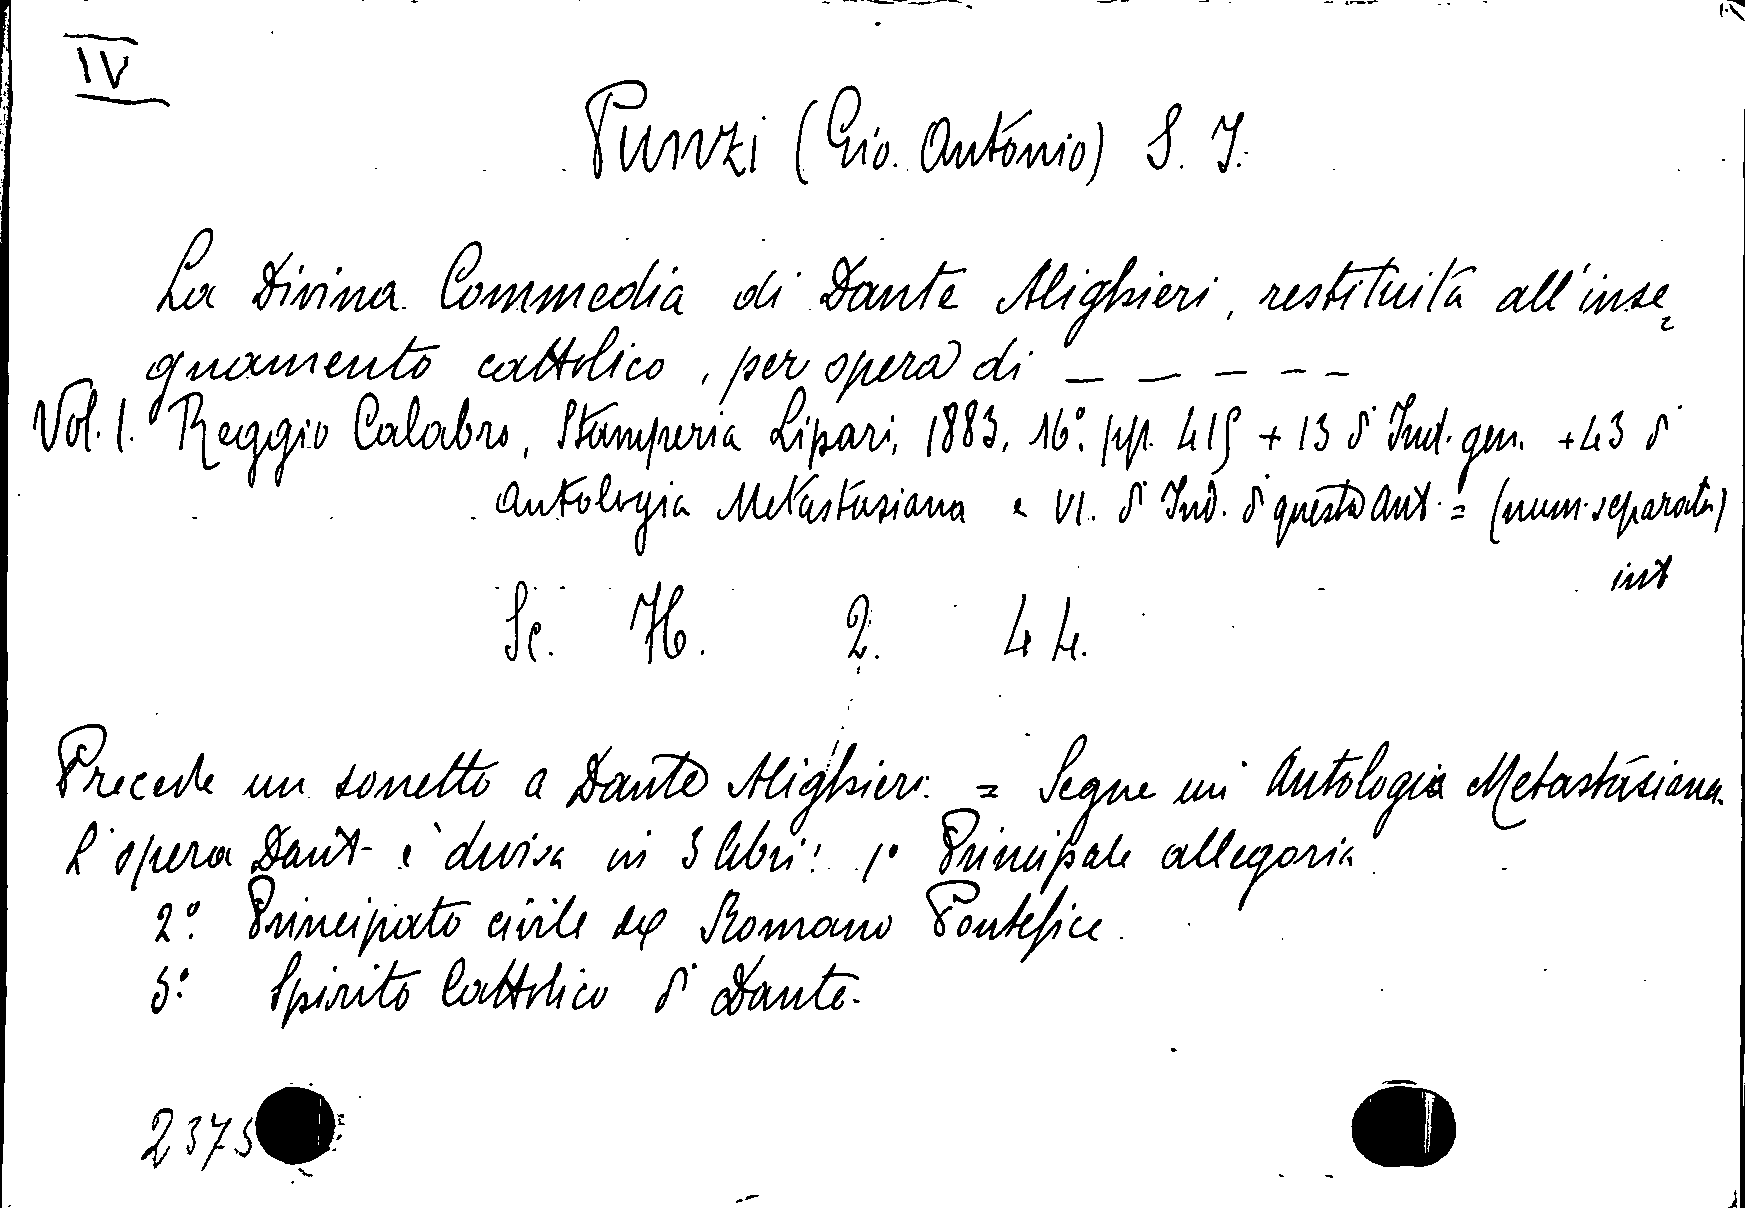 IV
Punzi (Gio. Antonio) S. J.
La Divina Commedia di Dante Alighieri, restituita all'inse=
gnamento cattolico, per opera di _ _ _ _ _
Vol. 1. Reggio Calabro, Stamperia Lipari, 1883, 16°. pp. 415 + 13 di Ind. gen. + 43 di
Antologia Metastasiana e VI. di Ind. di questa Ant. = (num. separata)
int
Sc. H. 2. 44.
Precede un sonetto a Dante Alighieri. = Segue un' Antologia Metastasiana.
L'opera Dant. è divisa in 3 libri: 1° Principale allegoria
2°. Principato civile del Romano Pontefice.
3° Spirito Cattolico di Dante.
2375